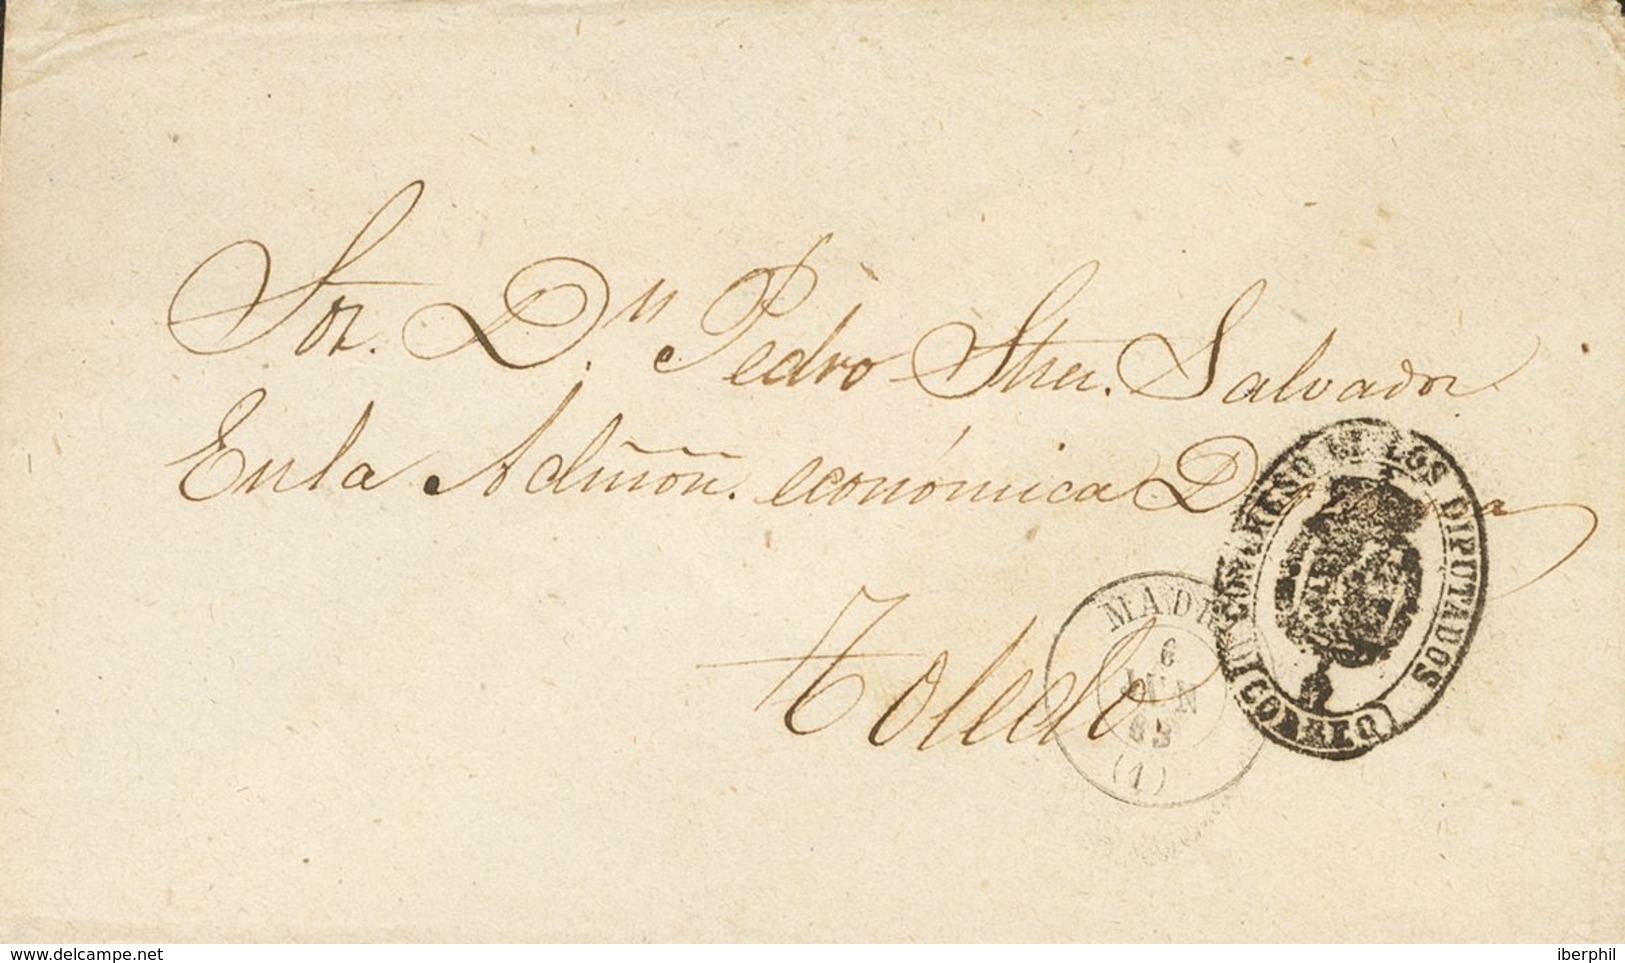 Sor. Dn. Pedro Salvador
En la Admōn. económica
Toledo
MADR
6
JUN
(1)
CONGRESO DE LOS DIPUTADOS
(CORREO)
www.delcampe.net
iberphil